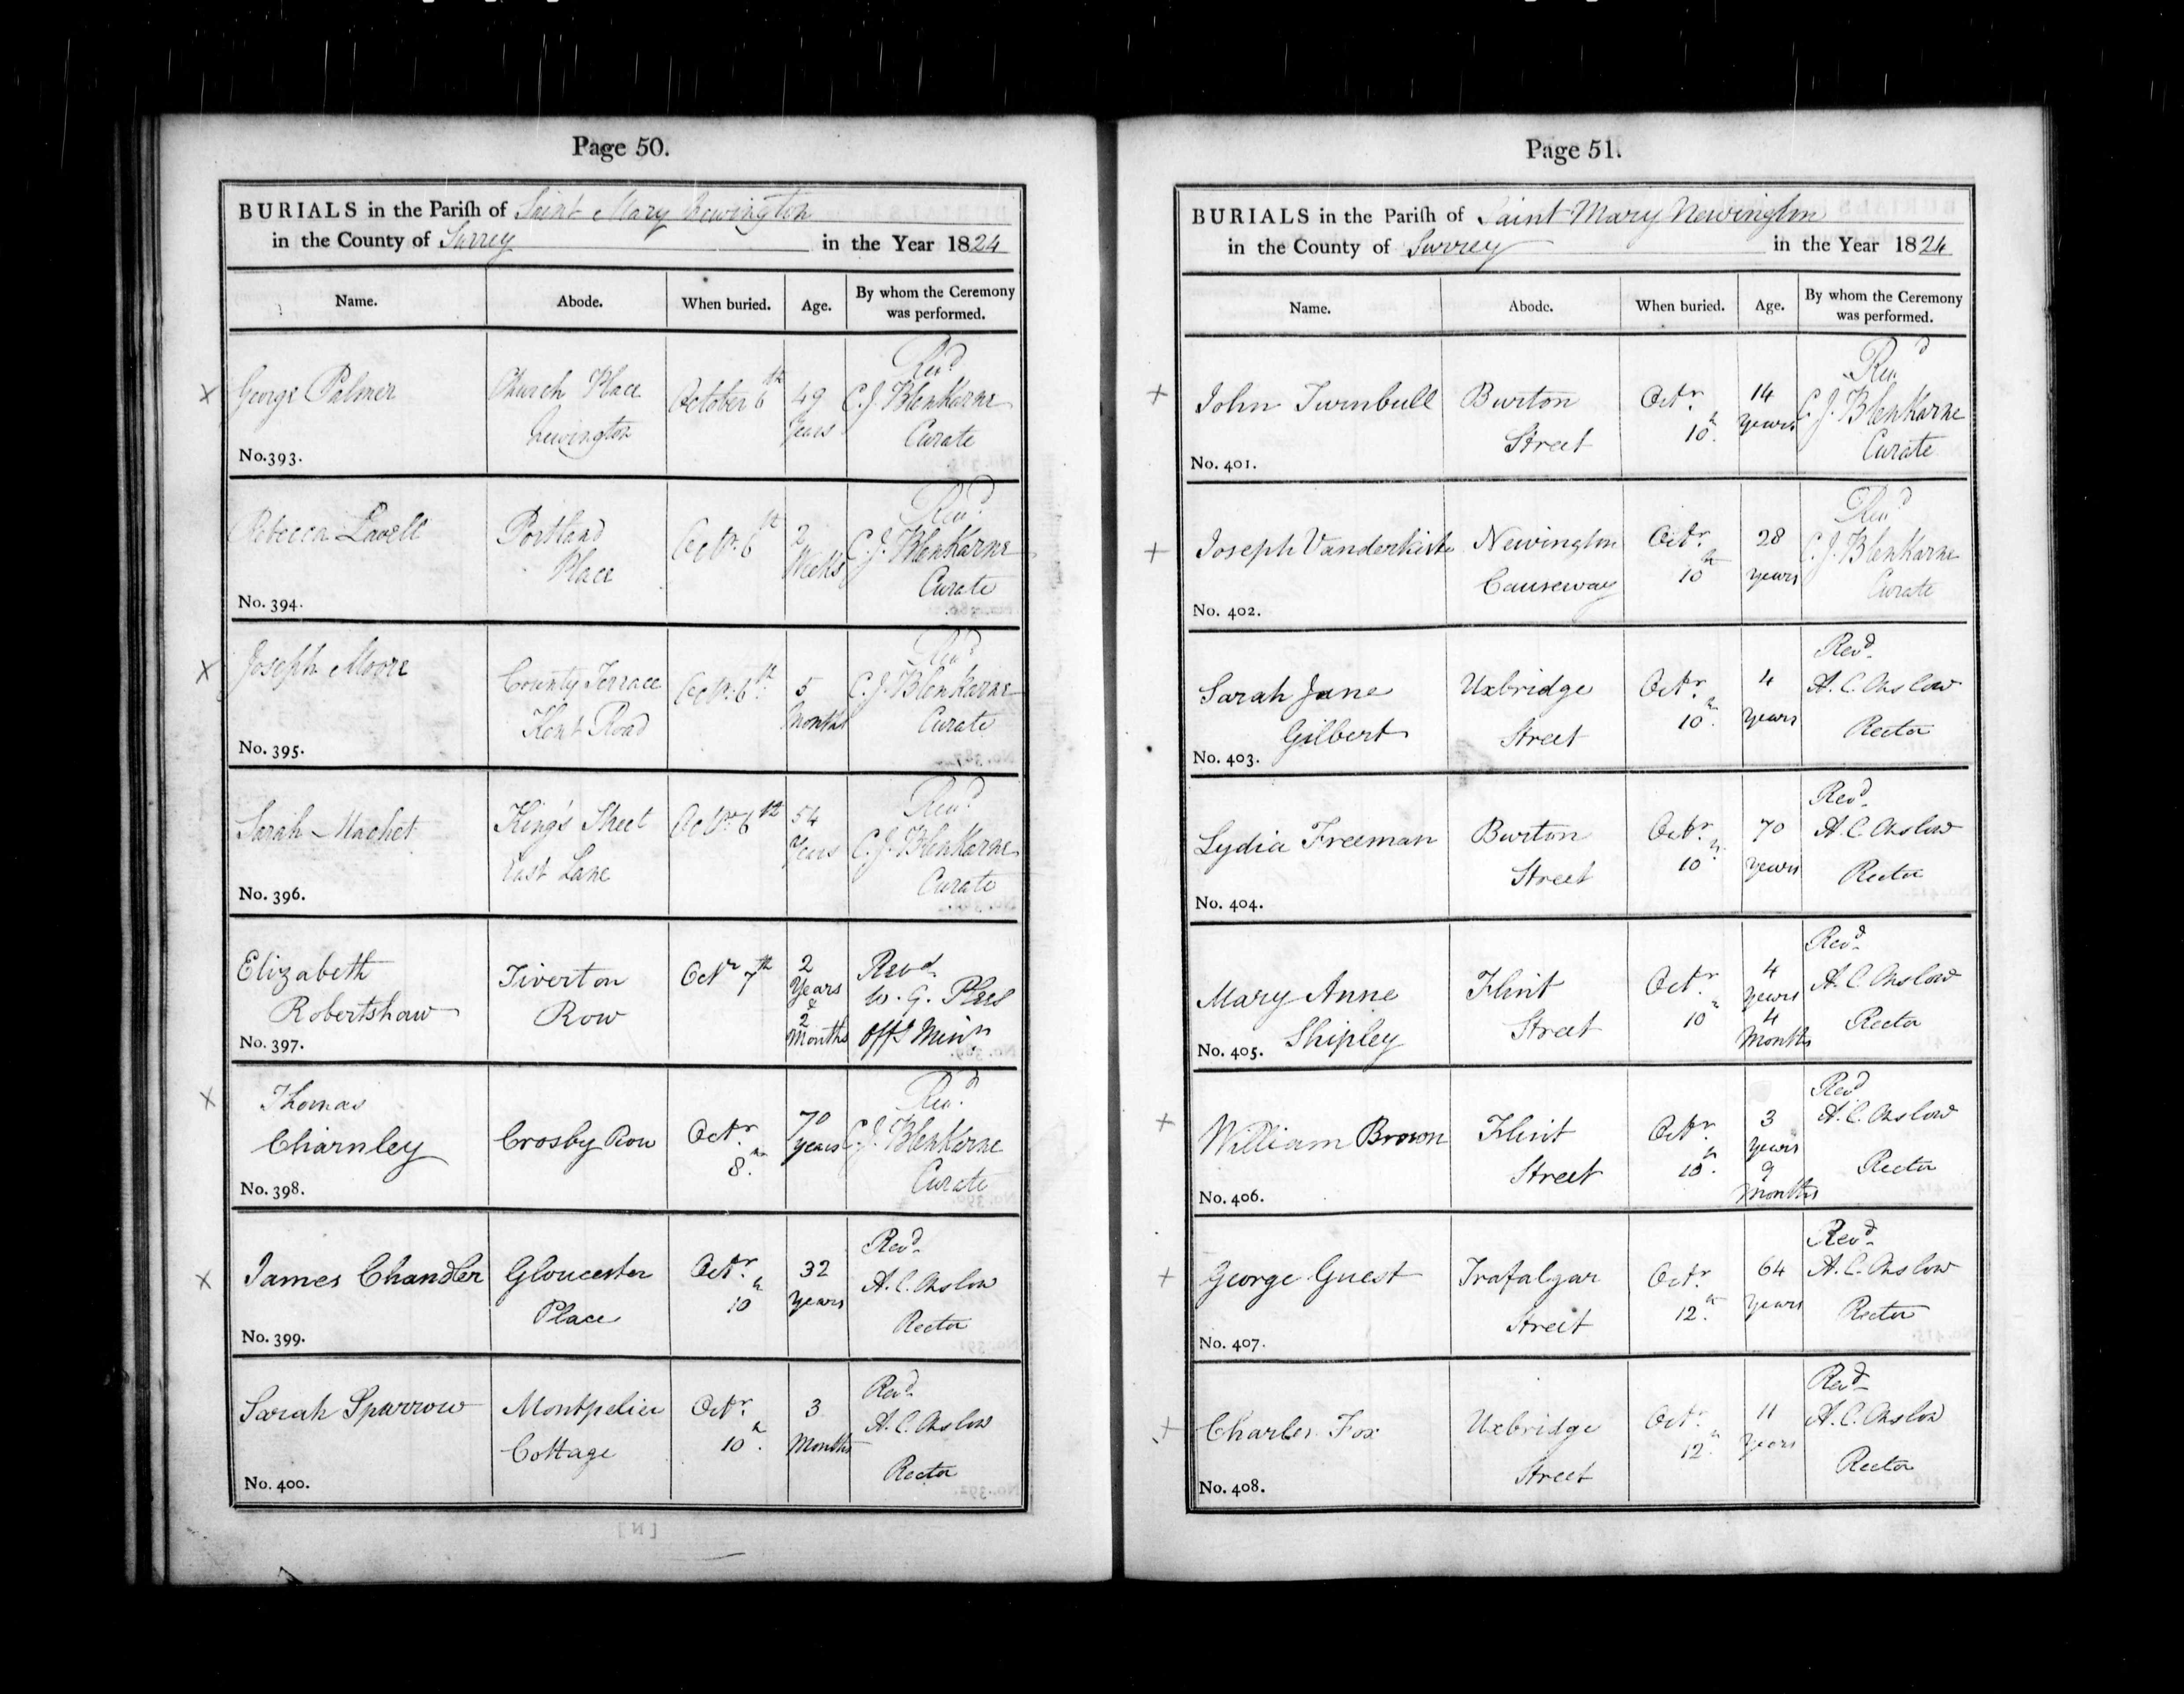 Page 50.
BURIALS in the Pariſh of Saint Mary Newington
in the County of Surrey in the Year 1824
Name. Abode. When buried. Age. By whom the Ceremony was performed.
George Palmer
Church Place
Newington
October 6th
49
Years
Revd
C. J. Blenkarne
Curate
No. 393.
Rebecca Lavell
Portland
Place
Octr. 6th
2
Weeks
Revd
C. J. Blenkarne
Curate
No. 394.
Joseph Moore
County Terrace
Kent Road
Octr. 6th
5
Months
Revd
C. J. Blenkarne
Curate
No. 395.
Sarah Machet
King's Street
East Lane
Octr 6th
54
Years
Revd
C. J. Blenkarne
Curate
No. 396.
Elizabeth
Robertshaw
Tiverton
Row
Octr 7th
2
Years
&
2
Months
Revd
W. G. Plees
Offg Minr
No. 397.
Thomas
Charnley
Crosby Row
Octr.
8th
70
Years
Revd
C. J. Blenkarne
Curate
No. 398.
James Chandler
Gloucester
Place
Octr.
10th
32
Years
Revd
A. C. Onslow
Rector
No. 399.
Sarah Sparrow
Montpelier
Cottage
Octr.
10th
3
Months
Revd
A. C. Onslow
Rector
No. 400.
[N]
Page 51.
BURIALS in the Pariſh of Saint Mary Newington
in the County of Surrey in the Year 1824
Name. Abode. When buried. Age. By whom the Ceremony was performed.
John Turnbull
Burton
Street
Octr.
10th
14
Years
Revd
C. J. Blenkarne
Curate
No. 401.
Joseph Vanderkiste
Newington
Causeway
Octr.
10th
28
Years
Revd
C. J. Blenkarne
Curate
No. 402.
Sarah Jane
Gilbert
Uxbridge
Street
Octr.
10th
4
Years
Revd.
A. C. Onslow
Rector
No. 403.
Lydia Freeman
Burton
Street
Octr.
10th
70
Years
Revd.
A. C. Onslow
Rector
No. 404.
Mary Anne
Shipley
Flint
Street
Octr.
10th
4
Years
4
Months
Revd.
A. C. Onslow
Rector
No. 405.
William Brown
Flint
Street
Octr.
10th
3
Years
9
Months
Revd
A. C. Onslow
Rector
No. 406.
George Guest
Trafalgar
Street
Octr.
12th
64
Years
Revd.
A. C. Onslow
Rector
No. 407.
Charles Fox
Uxbridge
Street
Octr.
12th
11
Years
Revd
A. C. Onslow
Rector
No. 408.